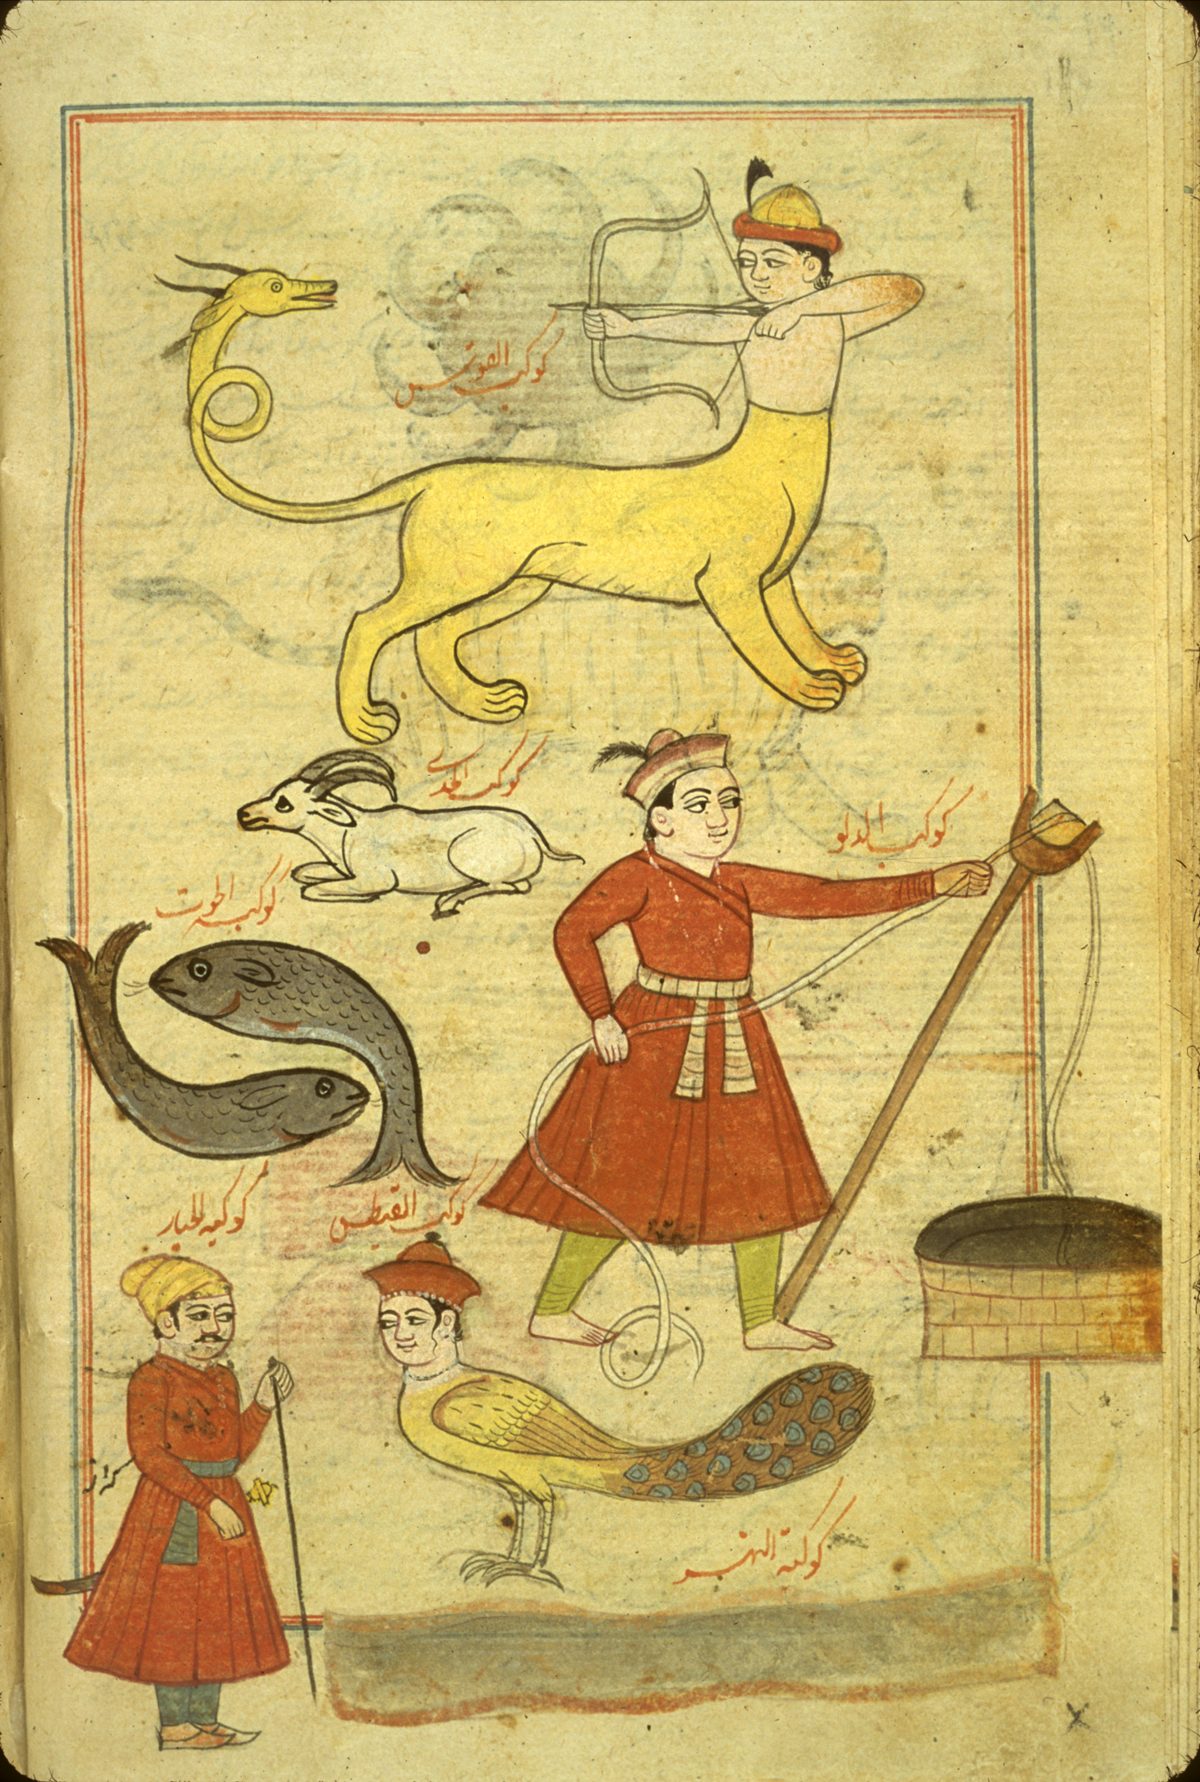 كوكب القوس
كوكب الجدي
كوكب الدلو
كوكبة الحوت
كوكبة الجبار
كوكب القيطس
كوكبة النهر